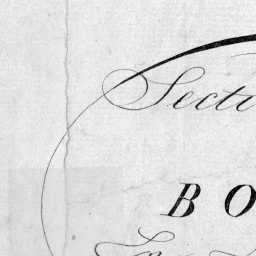 Secti
B O